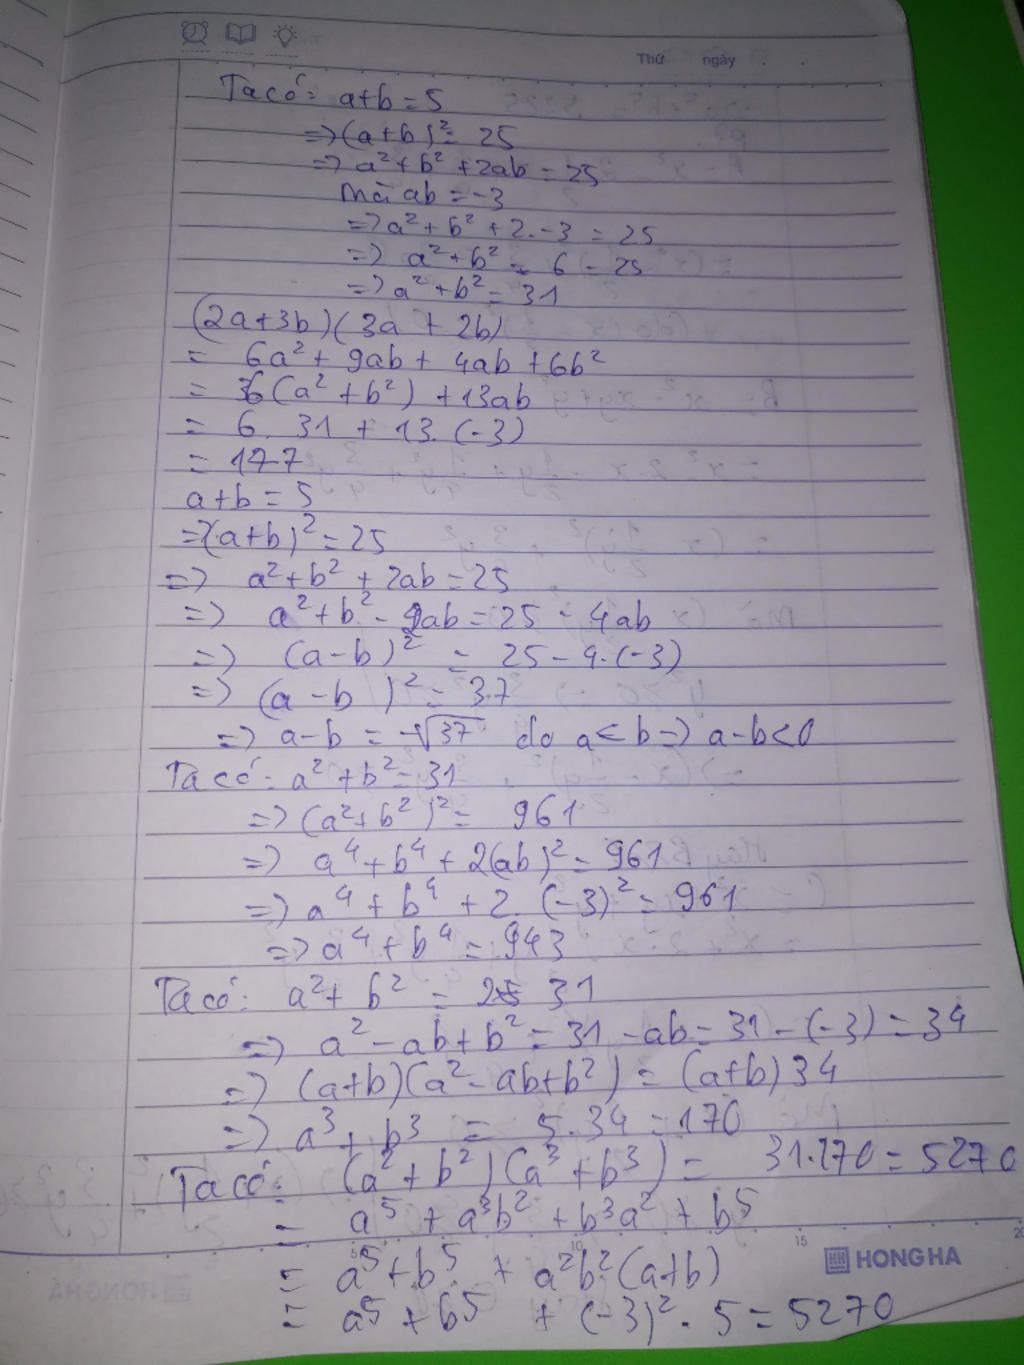 Thứ ngày
Ta có: a+b=5
=> (a+b)² = 25
=> a² + b² + 2ab = 25
mà ab = -3
=> a² + b² + 2.-3 = 25
=> a² + b² - 6 = 25
=> a² + b² = 31
(2a+3b)(3a + 2b)
= 6a² + 9ab + 4ab + 6b²
= 6(a² + b²) + 13ab
= 6. 31 + 13. (-3)
= 177
a+b = 5
=> (a+b)² = 25
=> a² + b² + 2ab = 25
=> a² + b² - 2ab = 25 - 4ab
=> (a-b)² = 25 - 4.(-3)
=> (a-b)² = 37
=> a-b = -√37 do a<b => a-b<0
Ta có: a² + b² = 31
=> (a² + b²)² = 961
=> a⁴ + b⁴ + 2(ab)² = 961
=> a⁴ + b⁴ + 2. (-3)² = 961
=> a⁴ + b⁴ = 943
Ta có: a² + b² = 31
=> a² - ab + b² = 31 - ab = 31 - (-3) = 34
=> (a+b)(a² - ab + b²) = (a+b) 34
=> a³ + b³ = 5.34 = 170
Ta có: (a² + b²)(a³ + b³) = 31.170 = 5270
= a⁵ + a³b² + b³a² + b⁵
= a⁵ + b⁵ + a²b²(a+b)
= a⁵ + b⁵ + (-3)². 5 = 5270
15
10
20
HH HONG HA